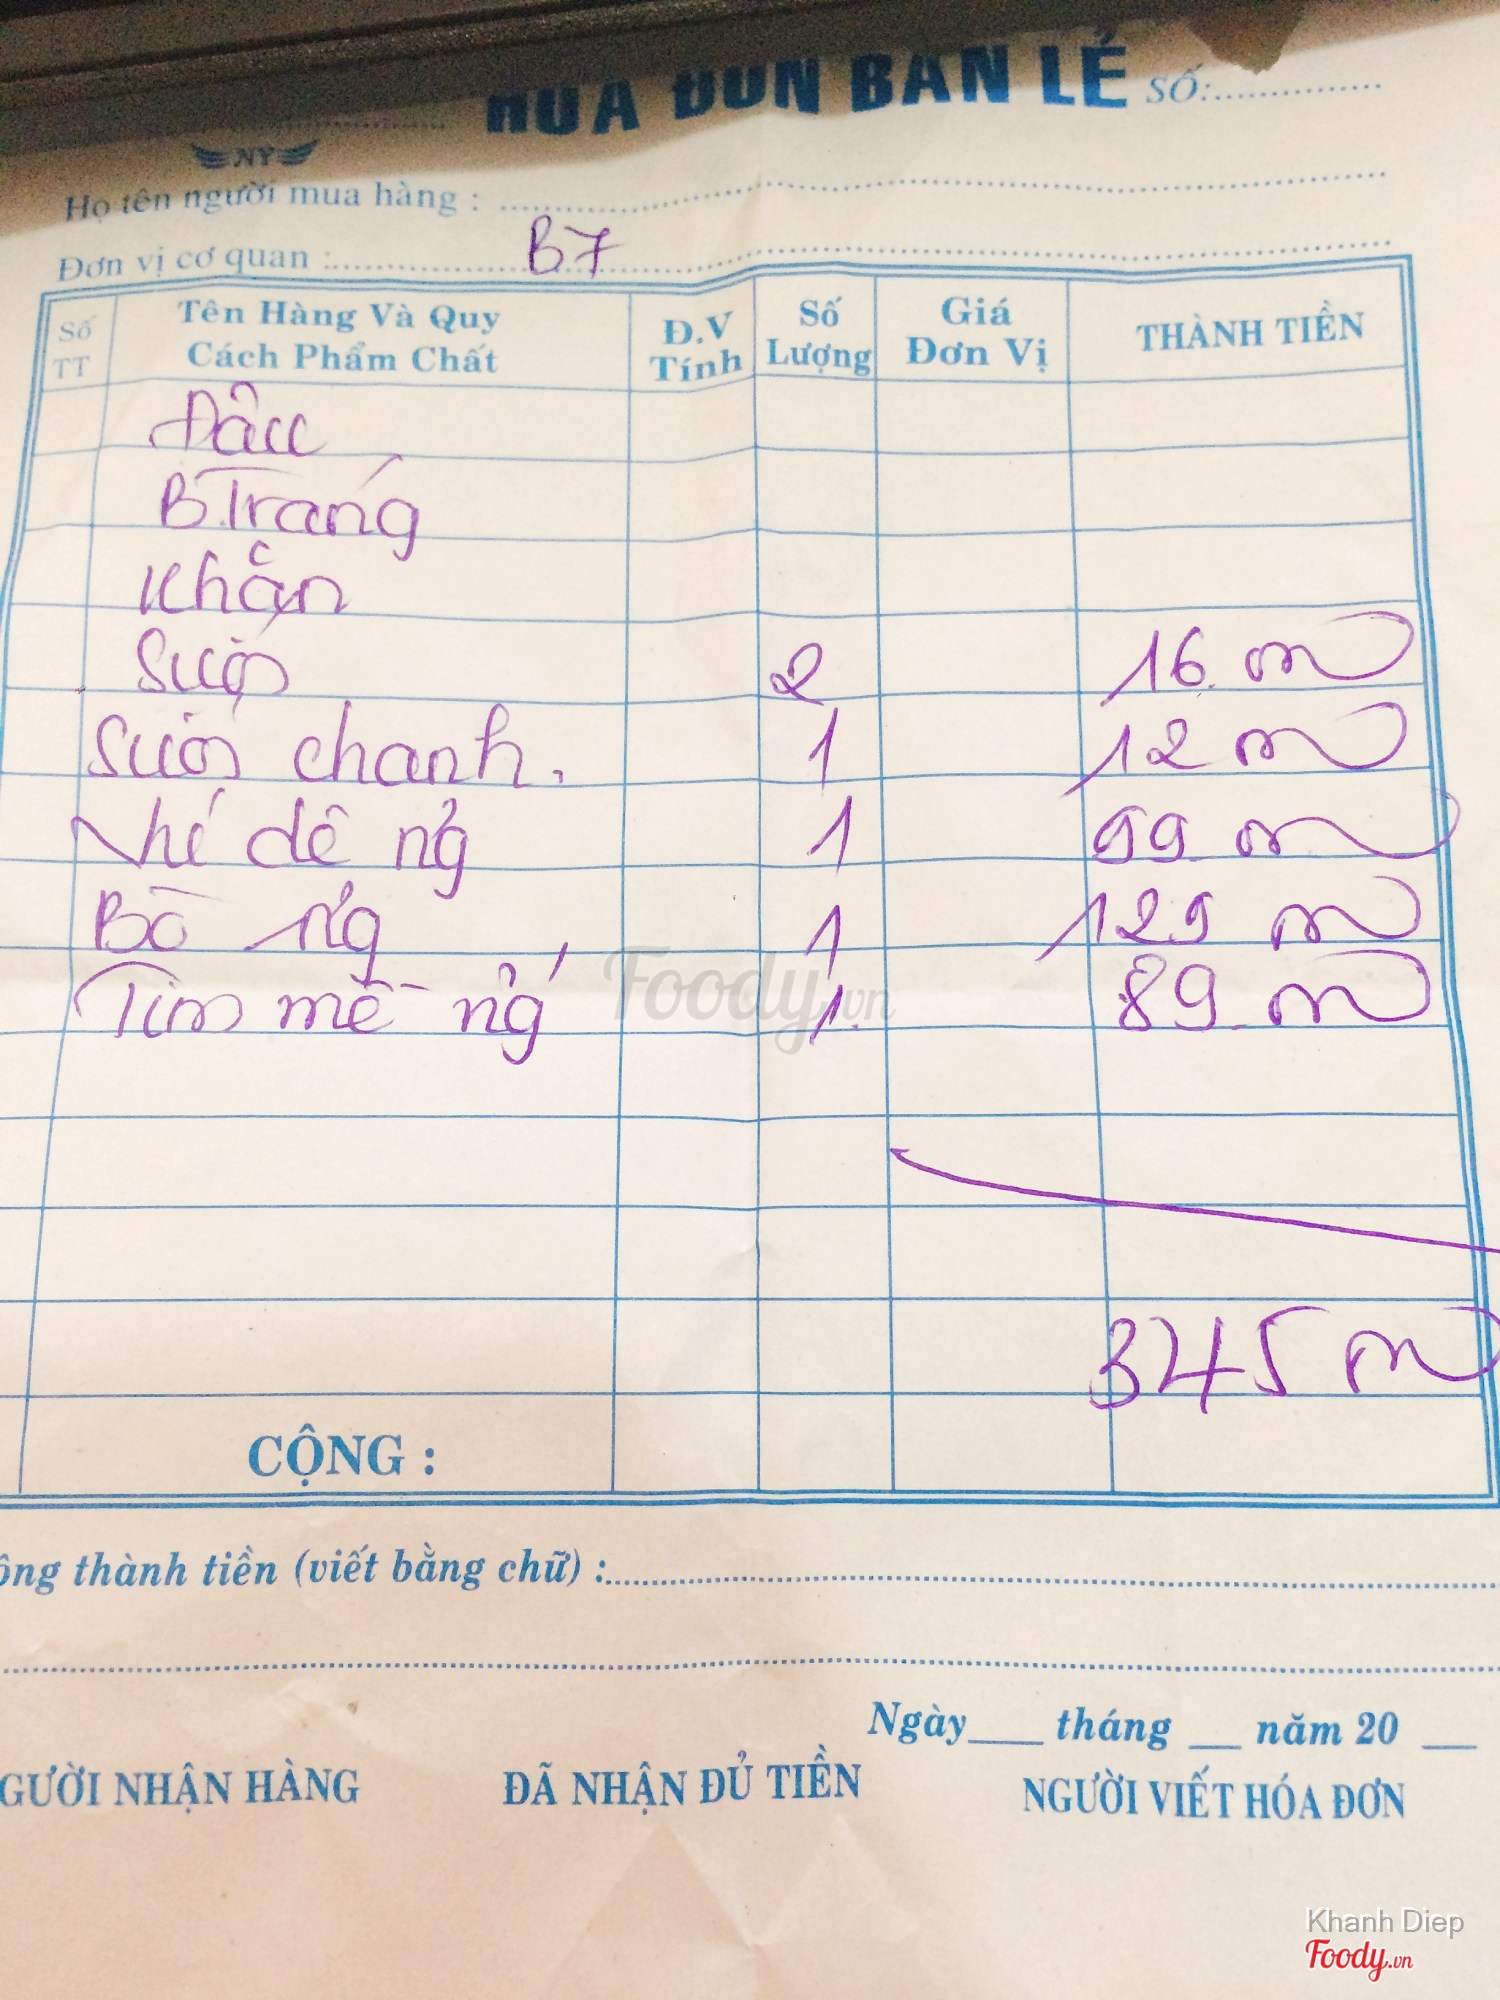 HÓA ĐƠN BÁN LẺ SỐ:
NY
Họ tên người mua hàng :
Đơn vị cơ quan : B7
Số TT Tên Hàng Và Quy Cách Phẩm Chất Đ.V Tính Số Lượng Giá Đơn Vị THÀNH TIỀN
Đâu
B.Tráng
Khăn
Suối 2 16
Suối chanh. 1 12
Nhí dê ng 1 99
Bò ng 1 129
Tim mề ng 1. 89
345
Foody.vn
CỘNG :
ông thành tiền (viết bằng chữ) :
Ngày tháng năm 20
GƯỜI NHẬN HÀNG ĐÃ NHẬN ĐỦ TIỀN NGƯỜI VIẾT HÓA ĐƠN
Khanh Diep
Foody.vn